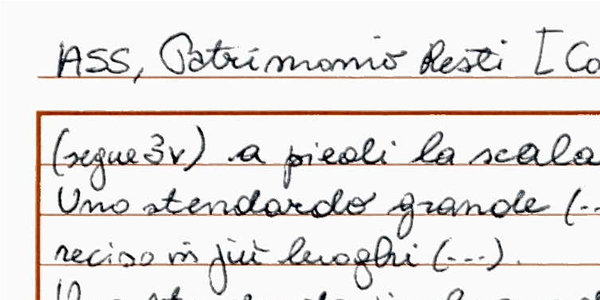 ASS, Patrimonio Resti [Co
(segue 3v) a piedi la scala
Uno stendardo grande (..
reciso in più luoghi (---).